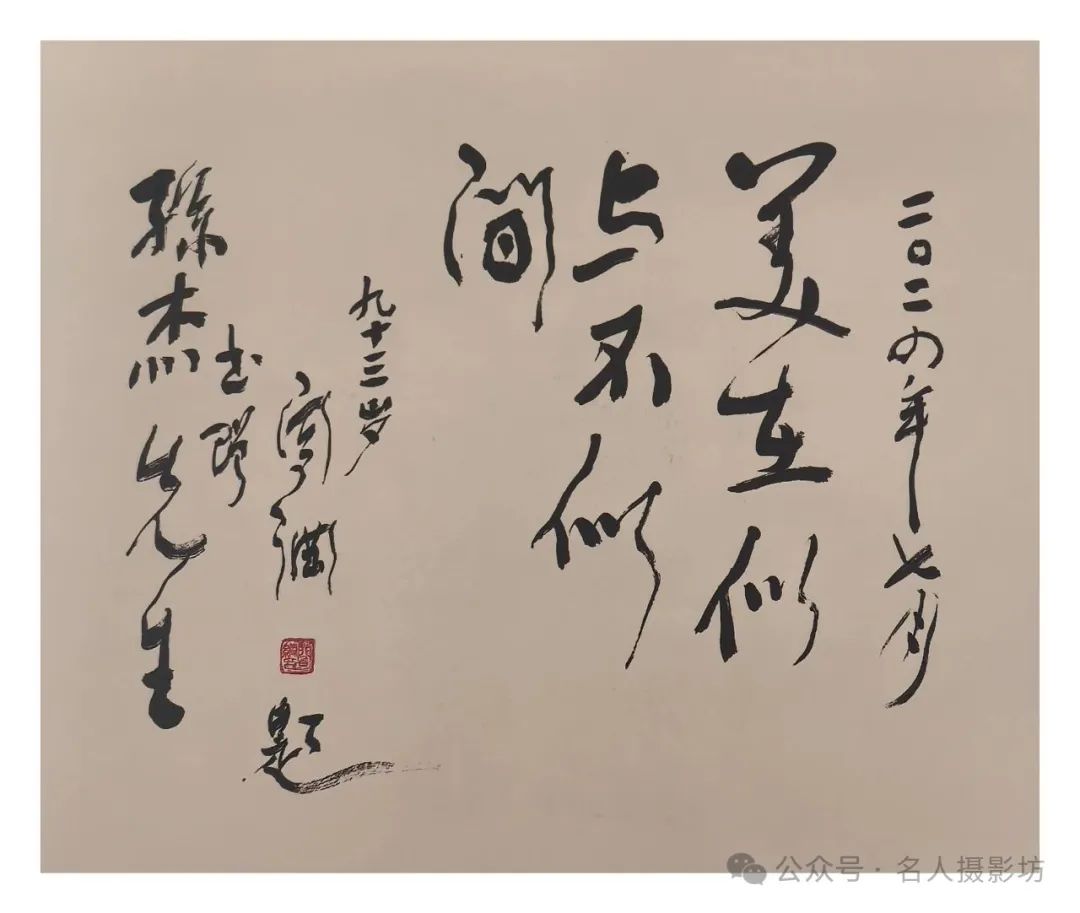 二〇二四年七月
美在似
与不似
间
九十三岁
阎纲
题
孫杰先生
公众号 · 名人摄影坊